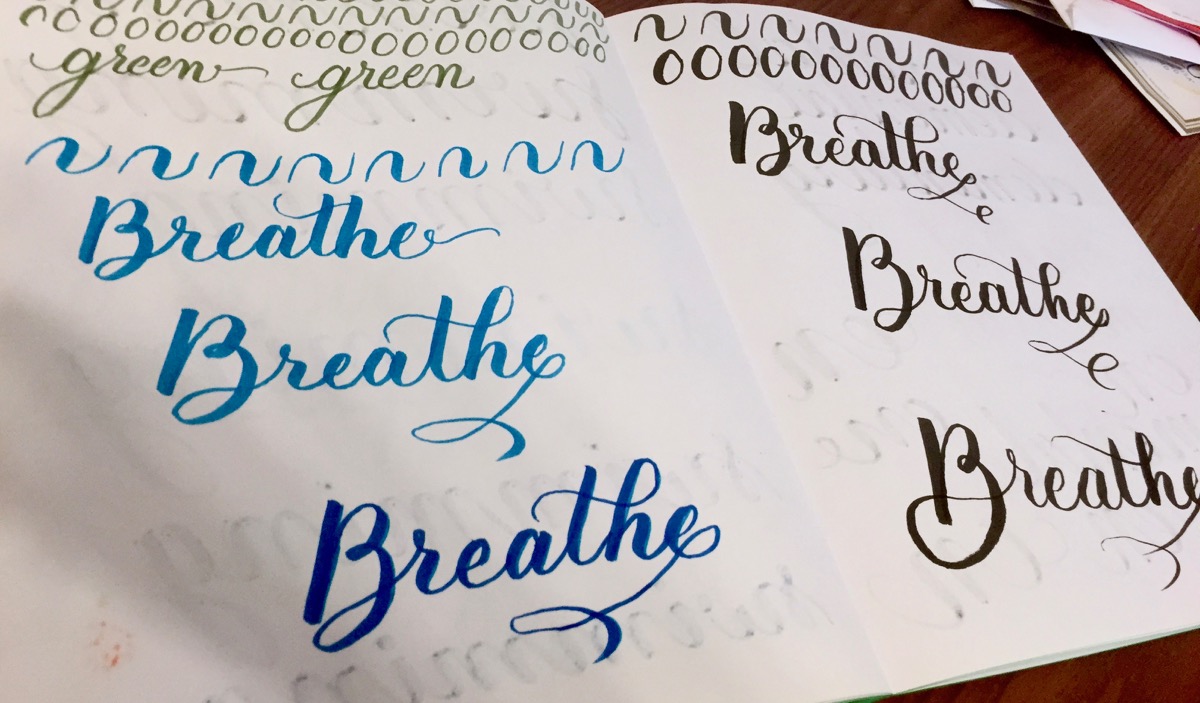 green green
Breathe
Breathe
Breathe
Breathe
Breathe
Breathe